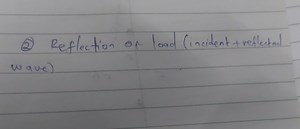 ② Reflection of load (incident + reflected
wave)